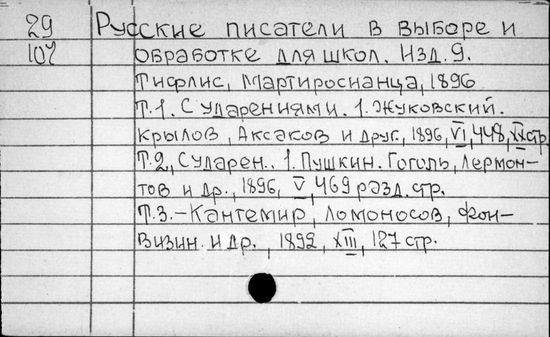 29 Русские писатели в выборе и
107 обработке для школ. Изд. 9.
Тифлис, Мартиросианца, 1896
Т.1. С ударениями. 1. Жуковский.
Крылов, Аксаков и друг, 1896, VI, 448, XX стр.
Т.2, С ударен.. 1. Пушкин. Гоголь, Лермон-
тов и др., 1896, V, 469 разд. стр.
Т.3.-Кантемир, Ломоносов, Фон-
визин. и др., 1892, XIII, 127 стр.